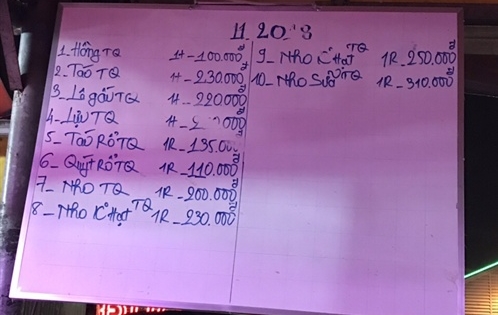 11 20
1_ Hồng TQ 1H_100.000đ
2_ Táo TQ 1H_230.000đ
3_ Lê gấu TQ 1H_220.000đ
4_ Lựu TQ 1H
5_ Táo Rổ TQ 1R_135.00
6_ Quýt Rổ TQ 1R_110.000
7_ Nho TQ 1R_200.000
8_ Nho K° Hạt TQ 1R_230.000
9_ Nho K° Hạt TQ 1R_250.000đ
10_ Nho Sữa TQ 1R_310.000đ